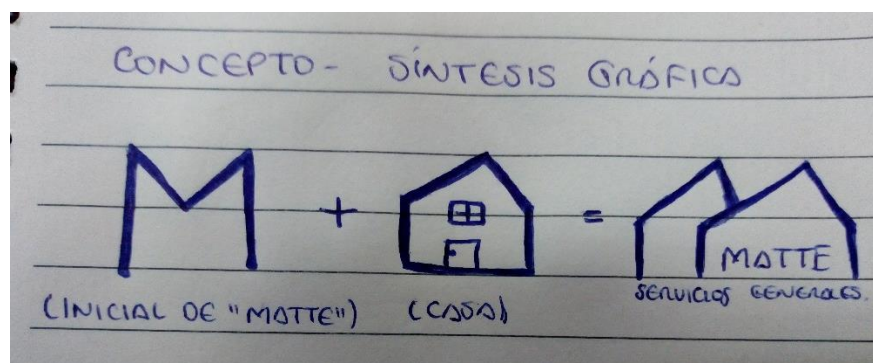 CONCEPTO - SÍNTESIS GRÁFICA
M + =
MATTE
SERVICIOS GENERALES.
(INICIAL DE "MATTE") (CASA)